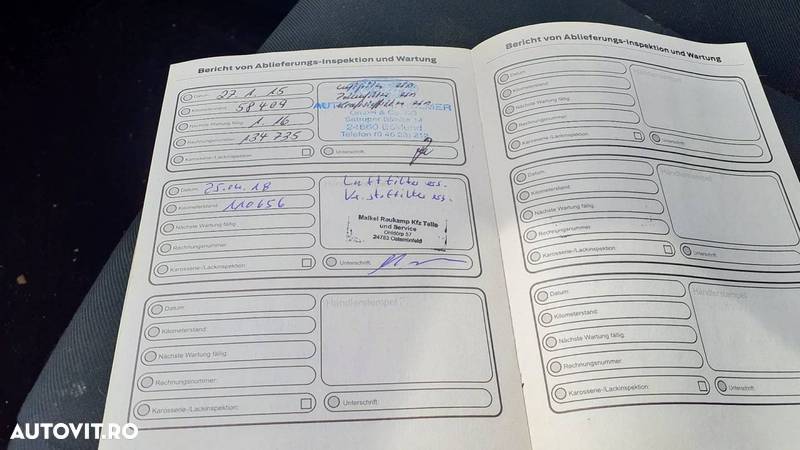 Bericht von Ablieferungs-Inspektion und Wartung
Datum: 27 1. 15
Kilometerstand: 58409
Nächste Wartung fällig: 1. 16
Rechnungsnummer: 134735
Karosserie-/Lackinspektion:
Luftfilter
GmbH & Co. KG
24860
Telefon (0 46 23) 212
Unterschrift:
Datum: 25.04.18
Kilometerstand: 110656
Nächste Wartung fällig:
Rechnungsnummer:
Karosserie-/Lackinspektion:
Luftfilter ers.
Maikel Raukamp Kfz Teile
und Service
24783 Osterrönfeld
Unterschrift:
Datum:
Kilometerstand:
Nächste Wartung fällig:
Rechnungsnummer:
Karosserie-/Lackinspektion:
Händlerstempel
Unterschrift:
Bericht von Ablieferungs-Inspektion und Wartung
Datum:
Kilometerstand:
Nächste Wartung fällig:
Rechnungsnummer:
Karosserie-/Lackinspektion:
Unterschrift:
Datum:
Kilometerstand:
Nächste Wartung fällig:
Rechnungsnummer:
Karosserie-/Lackinspektion:
Unterschrift:
Datum:
Kilometerstand:
Nächste Wartung fällig:
Rechnungsnummer:
Karosserie-/Lackinspektion:
Händlerstempel
Unterschrift
AUTOVIT.RO